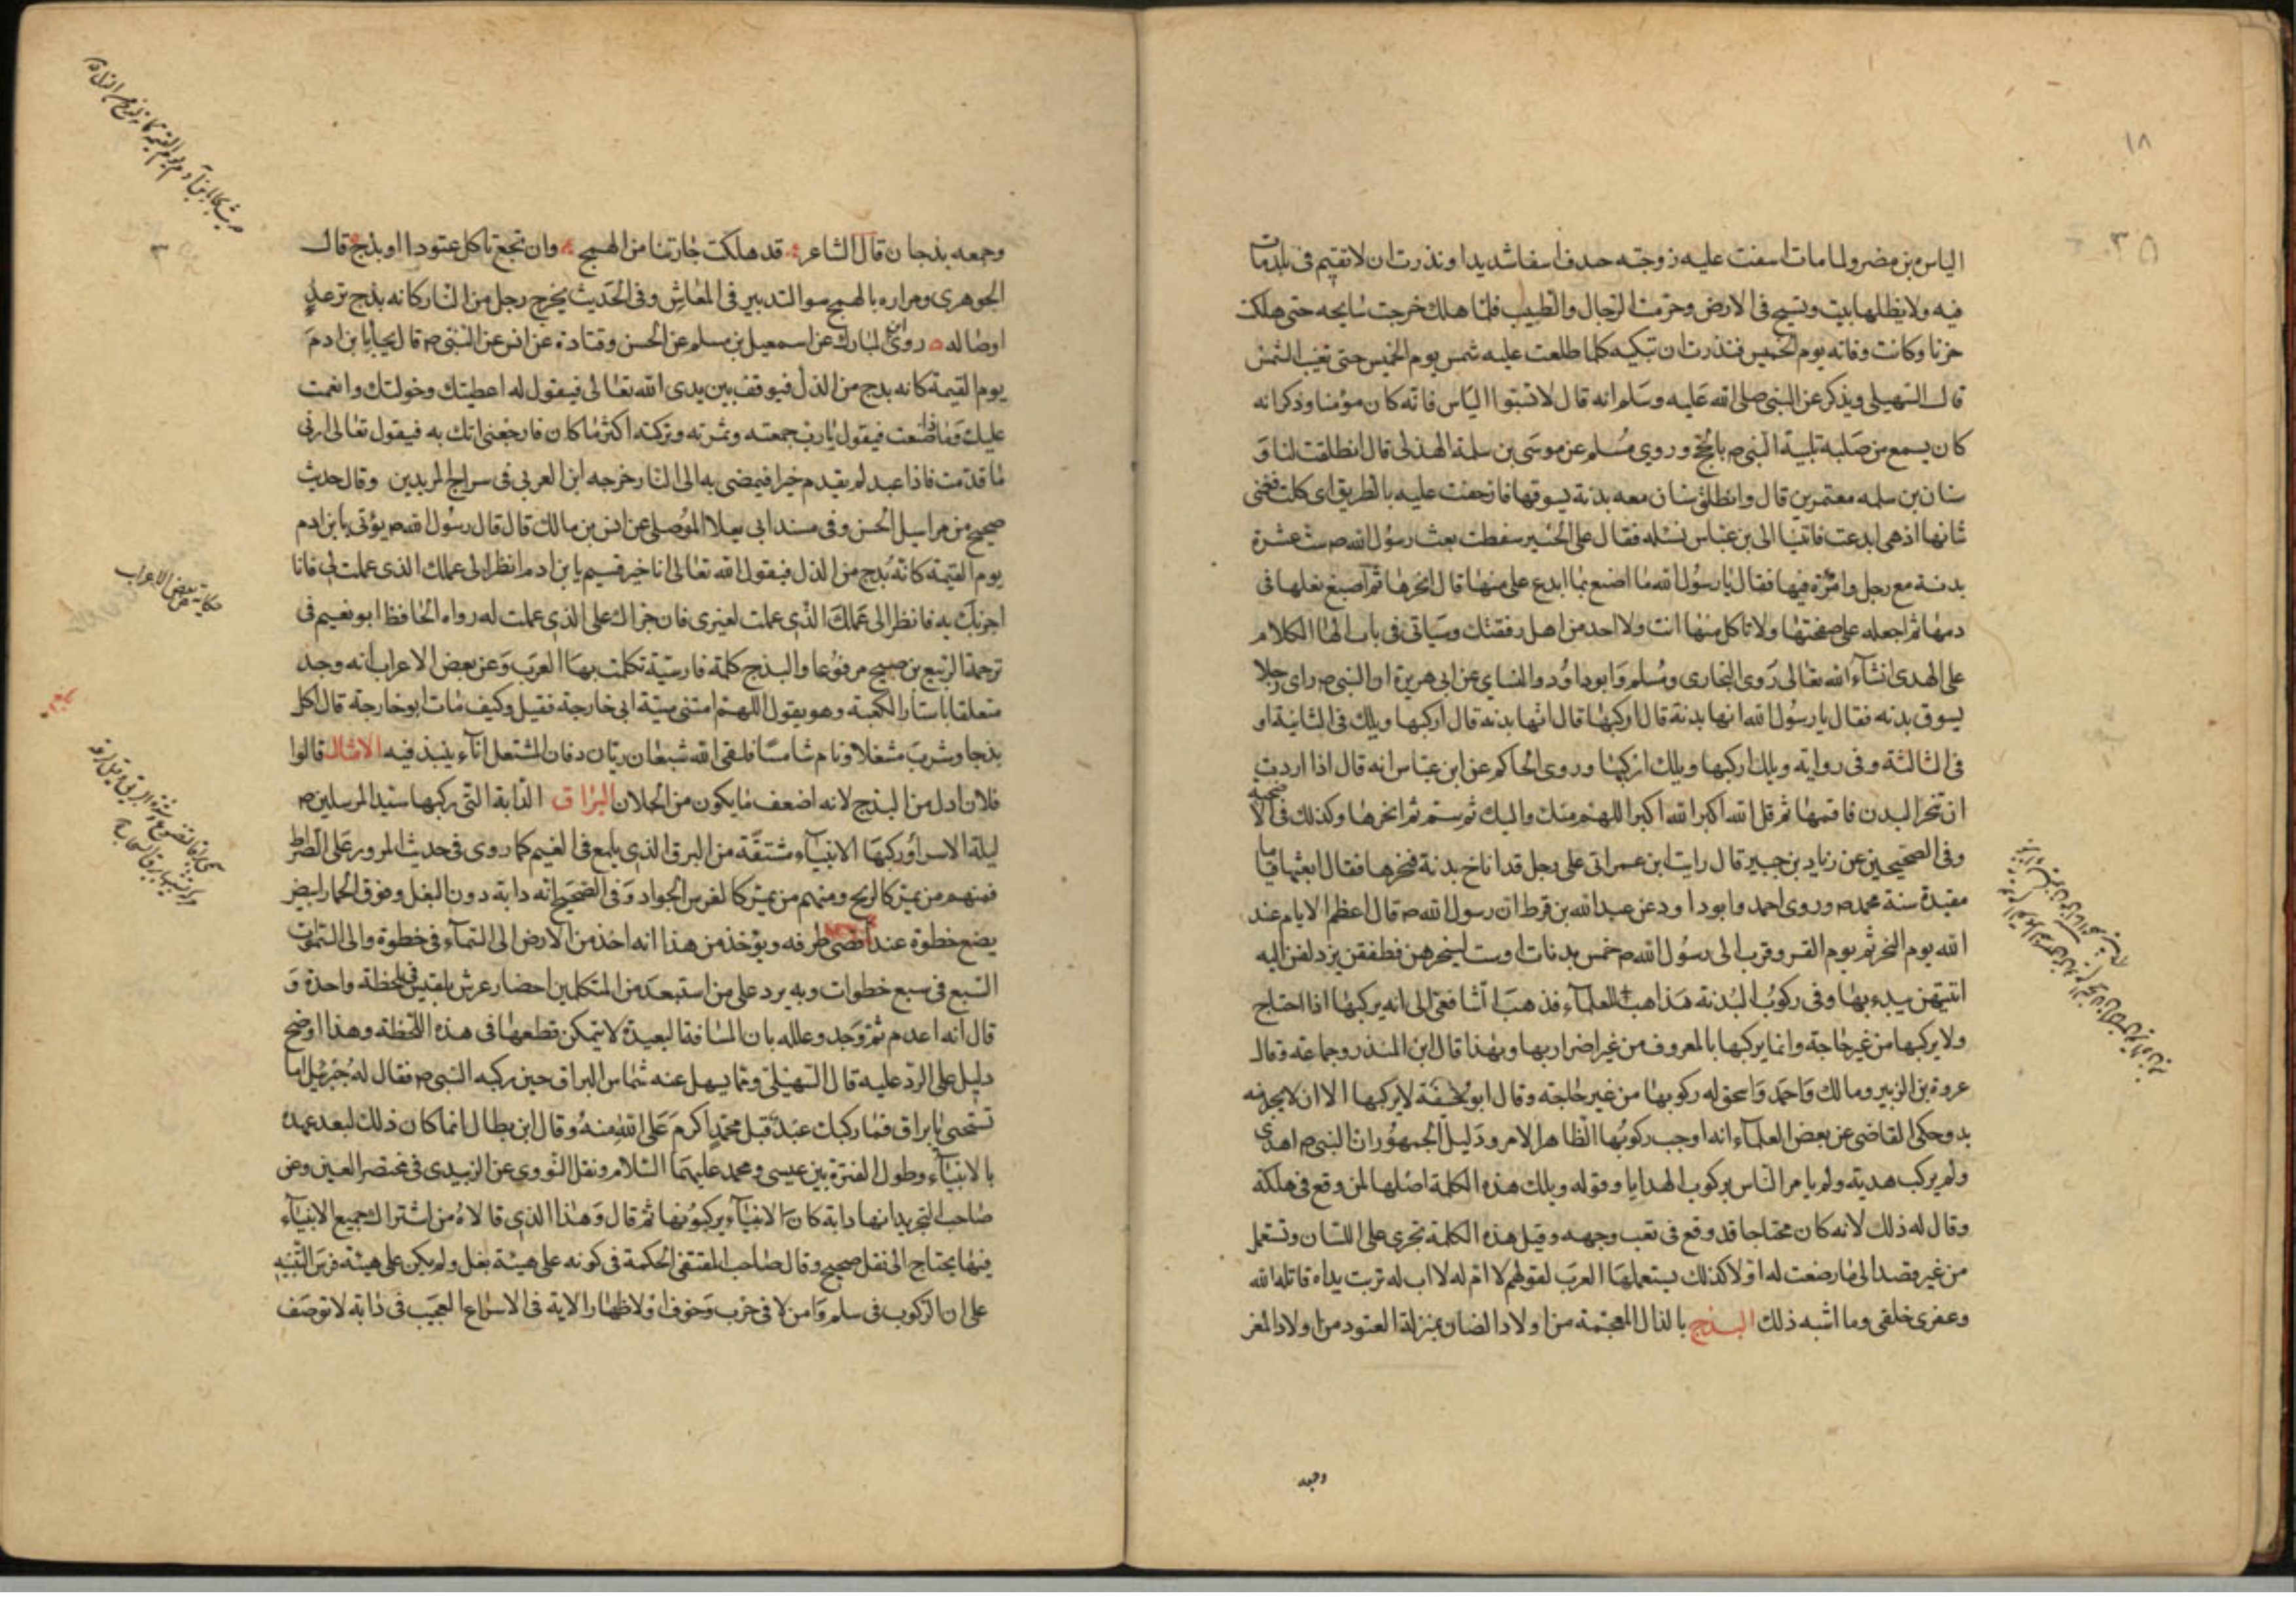 ١٨
٣٥
الياس بن مضر ولما مات اسفت عليه زوجته خندف اسفا شديدا ونذرت ان لا تقيم فى بلد مات
فيه ولا يظلها بيت وتسيح فى الارض وحرمت الرجال والطيب فلما هلك خرجت سايحه حتى هلكت
حزنا وكانت وفاته يوم الخميس فنذرت ان تبكيه كلما طلعت عليه شمس يوم الخميس حتى تغيب الشمس
قال السهيلى ويذكر عن النبى صلى الله عليه وسلم انه قال لا تسبوا الياس فانه كان مؤمنا وذكر انه
كان يسمع من صلبه تلبية النبى ص بالحج وروي مسلم عن موسى بن سلمة الهذلى قال انطلقت انا و
سنان بن سلمه معتمرين قال وانطلق سنان معه بدنة يسوقها فازحفت عليه بالطريق اى كلت فعيى
شانها اذ هى ابدعت فاتينا الى بن عباس نسئله فقال على الخبير سقطت بعث رسول الله ص ست عشرة
بدنة مع رجل وامره فيها فقال يا رسول الله ما اصنع بما ابدع على منها قال انحرها ثم اصبغ نعلها فى
دمها ثم اجعله على صفحتها ولا تاكل منها انت ولا احد من اهل رفقتك وسياتى فى باب الها الكلام
على الهدى انشآء الله تعالى روى البخارى ومسلم وابو داود والنساي عن ابى هريرة ان النبى ص راى رجلا
يسوق بدنه فقال يا رسول الله انها بدنة قال اركبها قال انها بدنه قال اركبها ويلك فى الثانية او
فى الثالثة وفى رواية ويلك اركبها ويلك اركبها وروى الحاكم عن ابن عباس انه قال اذا اردت
ان تنحر البدن فاقمها ثم قل الله اكبر الله اكبر اللهم منك واليك ثم سم ثم انحرها وكذلك فى الاضحية
وفى الصحيحين عن زياد بن جبير قال رايت ابن عمر اتى على رجل قد اناخ بدنة فنحرها فقال ابعثها قياما
مقيدة سنة محمد ص وروى احمد وابو داود عن عبد الله بن قرط ان رسول الله ص قال اعظم الايام عند
الله يوم النحر ثم يوم القر وقرب الى رسول الله ص خمس بدنات او ست لينحرهن فطفقن يزدلفن اليه
ايتهن يبدء بها وفى ركوب البدنة مذاهب للعلمآء فذهب الشافعى الى انه يركبها اذا احتاج
ولا يركبها من غير حاجة وانما يركبها بالمعروف من غير اضرار بها وبهذا قال ابن المنذر وجماعة وقال
عروة بن الزبير ومالك واحمد واسحق له ركوبها من غير حاجة وقال ابو حنيفة لا يركبها الا ان لا يجد منه
بد وحكى القاضى عن بعض العلمآء انه اوجب ركوبها الظاهر الامر ودليل الجمهور ان النبى ص اهدى
ولم يركب هديته ولم يامر الناس بركوب الهدايا وقوله ويلك هذه الكلمة اصلها لمن وقع فى هلكة
وقال له ذلك لانه كان محتاجا قد وقع فى تعب وجهد وقيل هذه الكلمة تجرى على اللسان وتستعمل
من غير قصد الى ما رضعت له اولا كذلك يستعملها العرب لقولهم لا ام له لا اب له تربت يداه قاتله الله
وعقرى حلقى وما اشبه ذلك البذج بالذال المعجمة من اولاد الضان بمنزلة العتود من اولاد المعز
وجمعه
وجمعه بذجان قال الشاعر قد هلكت جارتنا من الهمج وان تجع تاكل عتودا او بذج قال
الجوهرى ومراره بالهمج سو التدبير فى المعاش وفى الحديث يخرج رجل من النار كانه بذج ترعد
اوصاله روى ابن المبارك عن اسمعيل بن مسلم عن الحسن وقتادة عن انس عن النبى ص قال يجآء يابن ادم
يوم القيمة كانه بذج من الذل فيوقف بين يدى الله تعالى فيقول له اعطيتك وخولتك وانعمت
عليك فما صنعت فيقول يا رب جمعته وثمرته وتركته اكثر ما كان فارجعنى اتك به فيقول تعالى ارنى
ما قدمت فاذا عبد لم يقدم خيرا فيمضى به الى النار خرجه ابن العربى فى سراج المريدين وقال حديث
صحيح من مراسيل الحسن وفى مسند ابى يعلا الموصلى عن انس بن مالك قال قال رسول الله ص يؤتى بابن ادم
يوم القيمة كانه بذج من الذل فيقول الله تعالى انا خير قسيم يا بن ادم انظر الى عملك الذى عملت لى فانا
اجزيك به فانظر الى عملك الذى عملت لغيرى فان جزاك على الذى عملت له رواه الحافظ ابو نعيم فى
ترجمة الربيع بن صبيح مرفوعا والبذج كلمة فارسية تكلمت بها العرب وعن بعض الاعراب انه وجد
متعلقا باستار الكعبة وهو يقول اللهم امتنى ميتة ابى خارجة فقيل وكيف مات ابو خارجة قال اكل
بذجا وشرب مشعلا ونام شامسا فلقى الله شبعان ريان دفان المشعل اناء ينبذ فيه الامثال قالوا
فلان اذل من البذج لانه اضعف ما يكون من الحملان البراق الدابة التى ركبها سيد المرسلين ص
ليلة الاسرا وركبها الانبيآء مشتقة من البرق الذى يلمع فى الغيم كما روى فى حديث المرور على الصراط
فمنهم من يمر كالريح ومنهم من يمر كالفرس الجواد وفى الصحيح انه دابة دون البغل وفوق الحمار ابيض
يضع خطوة عند اقصى طرفه ويؤخذ من هذا انه اخذ من الارض الى السمآء فى خطوة والى السموات
السبع فى سبع خطوات وبه يرد على من استبعد من المتكلمين احضار عرش بلقيس فى لحظة واحدة و
قال انه اعدم ثم وجد وعلله بان المسافة البعيدة لا يتمكن قطعها فى هذه اللحظة وهذا اوضح
دليل على الرد عليه قال السهيلى وتما يسهل عنه شماس البراق حين ركبه النبى ص فقال له جبرئيل اما
تستحيى يا براق فما ركبك عبد قبل محمد اكرم على الله منه وقال ابن بطال انما كان ذلك لبعد عهده
بالانبيآء وطول الفترة بين عيسى ومحمد عليهما السلام ونقل النووى عن الزبيدى فى مختصر العين وعن
صاحب التحرير انها دابة كان الانبيآء يركبونها ثم قال وهذا الذى قالاه من اشتراك جميع الانبيآء
فيها يحتاج الى نقل صحيح وقال صاحب المقتفى الحكمة فى كونه على هيئة بغل ولم يكن على هيئة فرس التنبيه
على ان الركوب فى سلم وامن لا فى حرب وخوف او لاظهار الاية فى الاسراع العجيب فى دابة لا توصف
حكاية عن بعض الاعراب